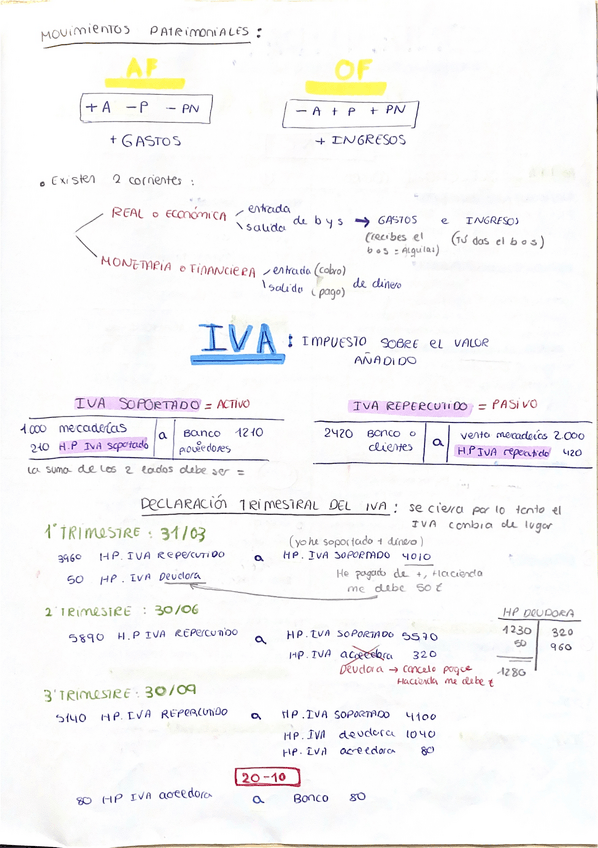 MOVIMIENTOS PATRIMONIALES :
AF OF
+ A - P - PN - A + P + PN
+ GASTOS + INGRESOS
• Existen 2 corrientes :
REAL o ECONÓMICA entrada salida de b y s → GASTOS e INGRESOS
(recibes el b o s = Alquilar) (Tú das el b o s)
MONETARIA o FINANCIERA entrada (cobro) salida (pago) de dinero
IVA : IMPUESTO SOBRE EL VALOR
AÑADIDO
IVA SOPORTADO = ACTIVO IVA REPERCUTIDO = PASIVO
1000 mecaderías a Banco 1210
210 H.P IVA soportado proveedores
2420 Banco o a venta mercaderías 2.000
clientes H.P IVA repercutido 420
La suma de los 2 lados debe ser =
DECLARACIÓN TRIMESTRAL DEL IVA : se cierra por lo tanto el
IVA cambia de lugar
1º TRIMESTRE : 31/03 (yo he soportado + dinero)
3960 HP. IVA REPERCUTIDO a HP. IVA SOPORTADO 4010
50 HP. IVA Deudora He pagado de +, Hacienda
me debe 50 €
2º TRIMESTRE : 30/06 HP DEUDORA
5890 H.P IVA REPERCUTIDO a HP. IVA SOPORTADO 5570
HP. IVA acreedora 320
Deudora → cancelo porque
Hacienda me debe €
1230 320
50 960
1280
3º TRIMESTRE : 30/09
5140 HP. IVA REPERCUTIDO a HP. IVA SOPORTADO 4100
HP. IVA deudora 1040
HP. IVA acreedora 80
20-10
80 HP IVA acreedora a Banco 80